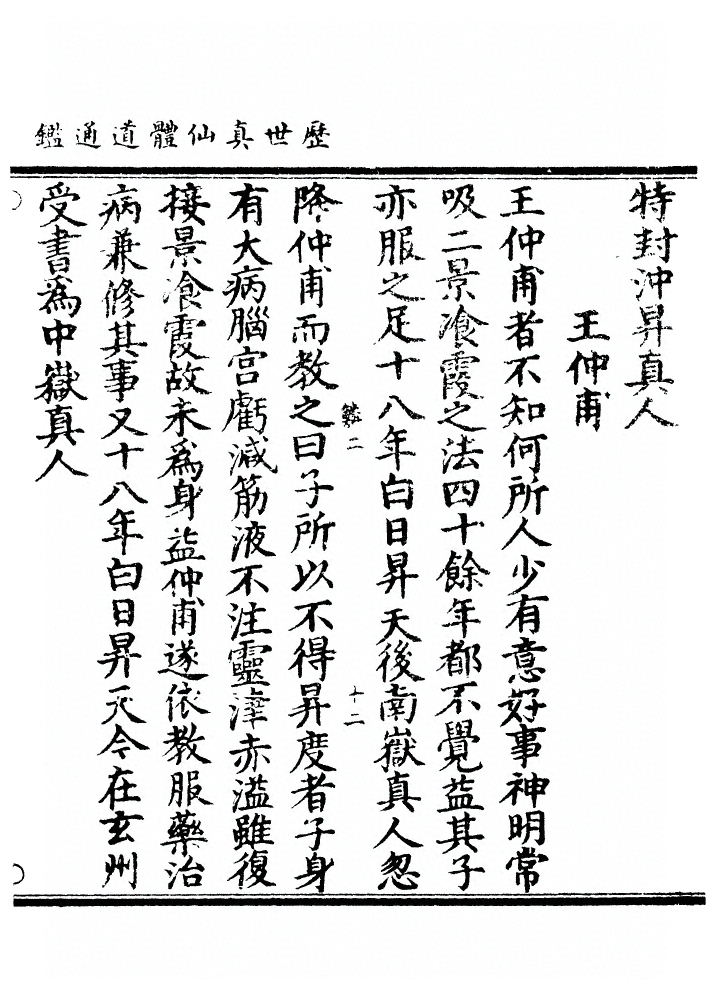 歷世真仙體道通鑑
特封沖昇真人
王仲甫
王仲甫者不知何所人少有意好事神明常
吸二景飡霞之法四十餘年都不覺益其子
亦服之足十八年白日昇天後南嶽真人忽
降仲甫而教之曰子所以不得昇度者子身
二
十二
有大病腦宮虧減筋液不注靈津赤溢雖復
接景飡霞故未為身益仲甫遂依教服藥治
病兼修其事又十八年白日昇天今在玄州
受書為中嶽真人